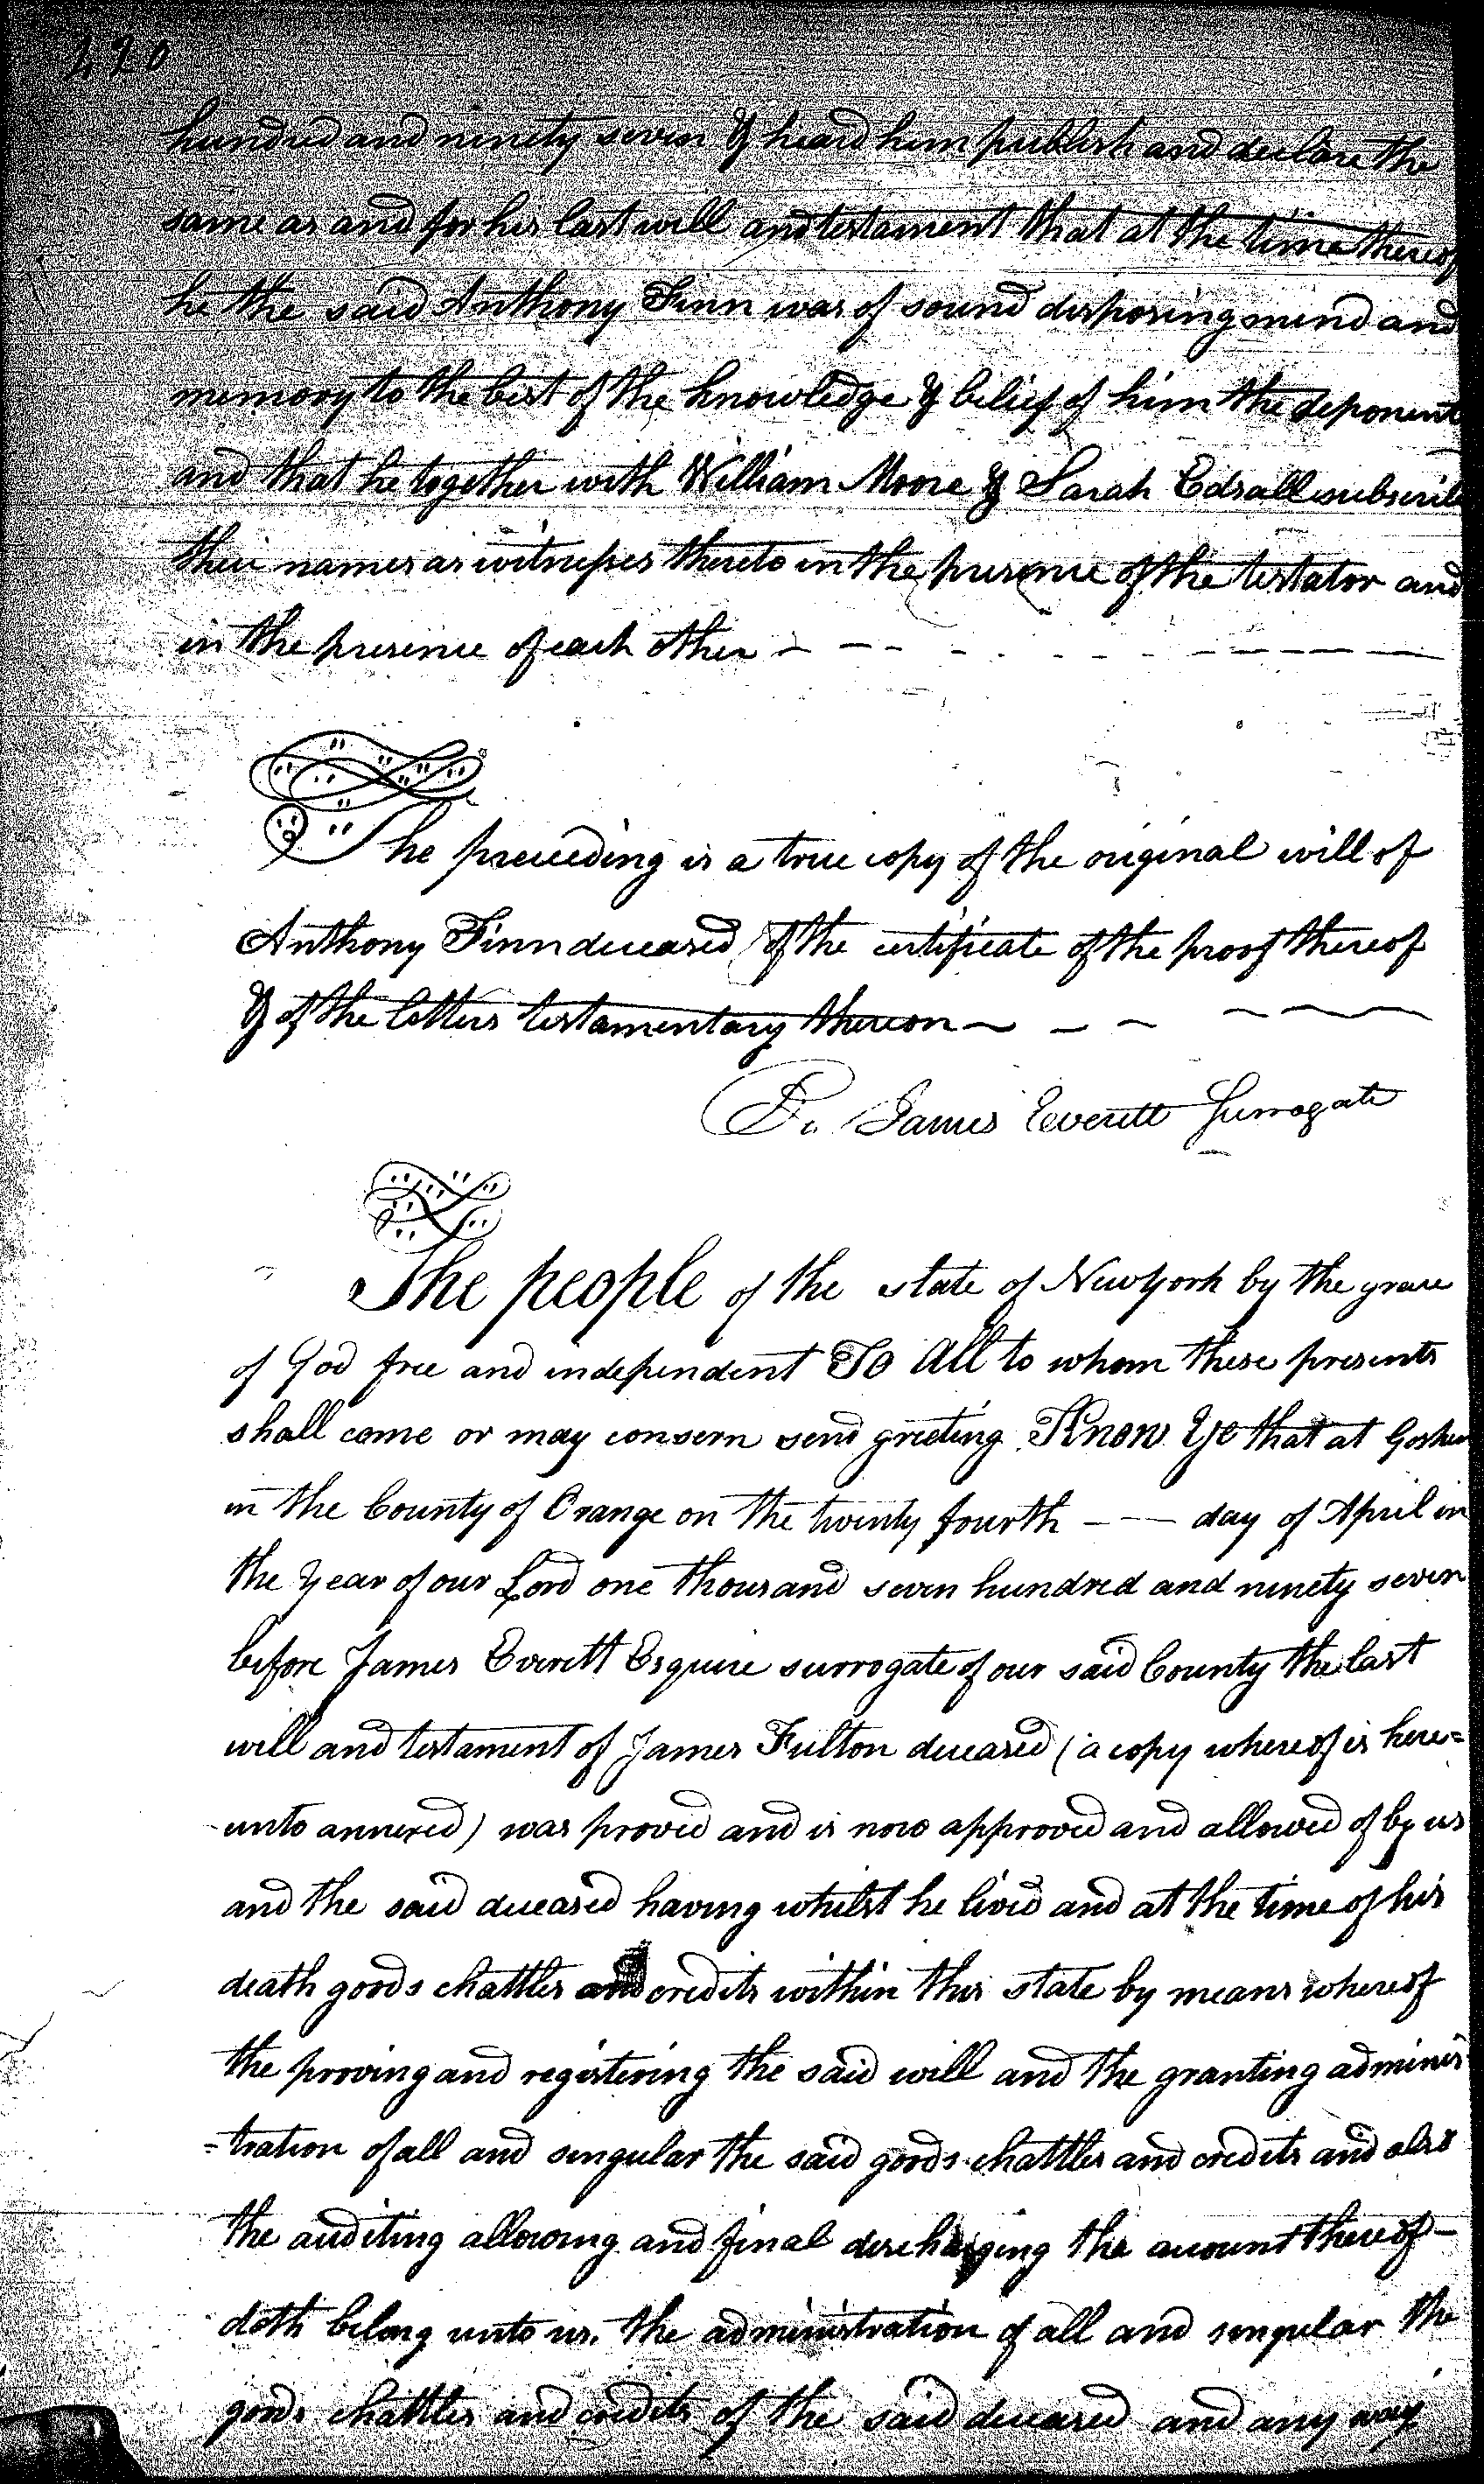 220
hundred and ninety seven & heard him publish and declare the
same as and for his last will and testament that at the time thereof
he the said Anthony Finn was of sound disposing mind and
memory to the best of the knowledge & belief of him the deponent
and that he together with William Moore & Sarah Edsall subscribe
their names as witnesses thereto in the presence of the testator and
in the presence of each other
The preceeding is a true copy of the original will of
Anthony Finn deceased of the certificate of the proof thereof
& of the letters testamentary thereon
James Everett Surrogate
The people of the state of Newyork by the grace
of God free and independent To All to whom these presents
shall come or may consern send greeting Know Ye that at Goshen
in the County of Orange on the twenty fourth -- day of April in
the year of our Lord one thousand seven hundred and ninety seven
before James Everett Esquire surrogate of our said County the last
will and testament of James Fulton deceased (a copy whereof is here=
unto annexed) was proved and is now approved and allowed of by us
and the said deceased having whilst he lived and at the time of his
death goods chattles and credits within this state by means whereof
the proving and registering the said will and the granting adminis
=tration of all and singular the said goods chattles and credits and also
the auditing allowing and final discharging the account thereof-
doth belong unto us. the administration of all and singular the
goods chattles and credits of the said deceased and any way